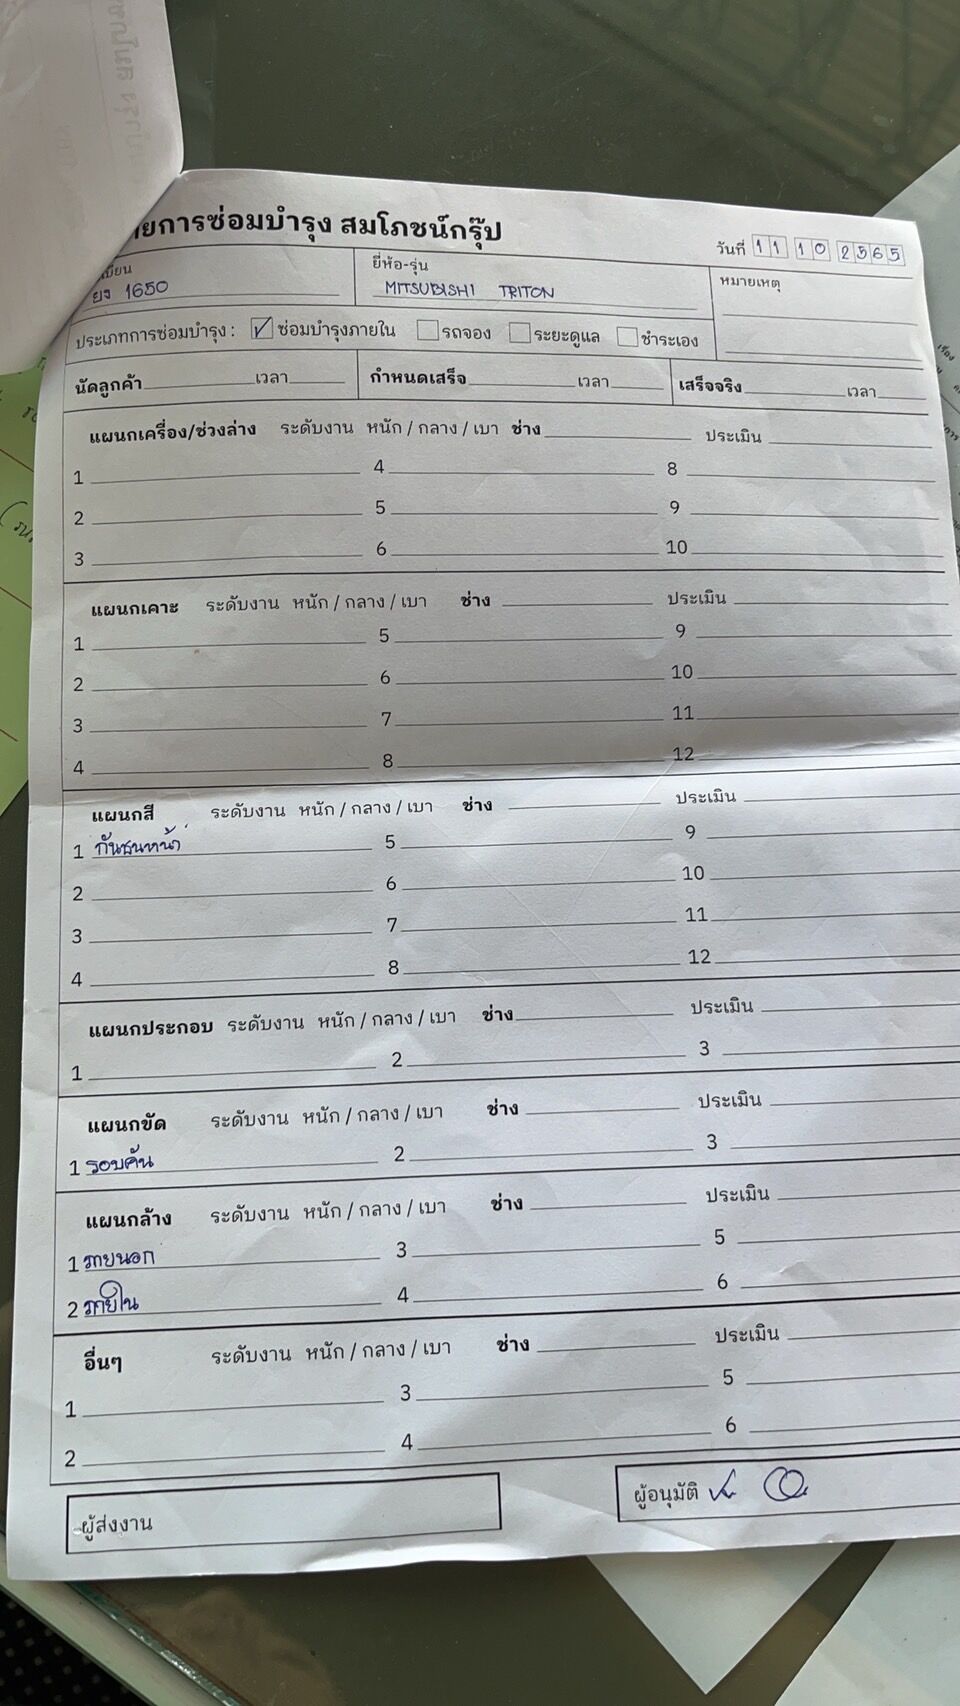 ยการซ่อมบำรุง สมโภชน์กรุ๊ป
วันที่ 11 10 2565
เบียน
ยจ 1650
ยี่ห้อ-รุ่น
MITSUBISHI TRITON
หมายเหตุ
ประเภทการซ่อมบำรุง : ซ่อมบำรุงภายใน รถจอง ระยะดูแล ชำระเอง
นัดลูกค้า เวลา กำหนดเสร็จ เวลา เสร็จจริง เวลา
แผนกเครื่อง/ช่วงล่าง ระดับงาน หนัก / กลาง / เบา ช่าง ประเมิน
1 4 8
2 5 9
3 6 10
แผนกเคาะ ระดับงาน หนัก / กลาง / เบา ช่าง ประเมิน
1 5 9
2 6 10
3 7 11
4 8 12
แผนกสี ระดับงาน หนัก / กลาง / เบา ช่าง ประเมิน
1 กันชนหน้า 5 9
2 6 10
3 7 11
4 8 12
แผนกประกอบ ระดับงาน หนัก / กลาง / เบา ช่าง ประเมิน
1 2 3
แผนกขัด ระดับงาน หนัก / กลาง / เบา ช่าง ประเมิน
1 รอบคัน 2 3
แผนกล้าง ระดับงาน หนัก / กลาง / เบา ช่าง ประเมิน
1 ภายนอก 3 5
2 ภายใน 4 6
อื่นๆ ระดับงาน หนัก / กลาง / เบา ช่าง ประเมิน
1 3 5
2 4 6
ผู้ส่งงาน
ผู้อนุมัติ